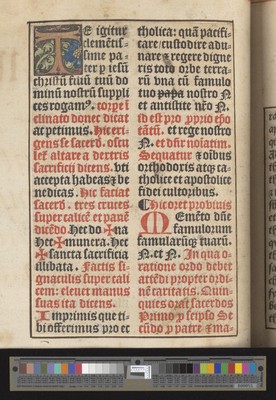 TE igitur
clemētis-
sime pa-
ter p iesū
christū filiū tuū do
minū nostrū suppli
ces rogam⁹. corpe ī
clinato donec dicat
ac petimus. Hic eri-
gens se sacerd. oscu
let altare a dextris
sacrificii dicens. vti
accepta habeas ⁊ be
nedicas. Hic faciat
sacerd. tres cruces
super calicē et panē
dicēdo. Hec do✠na
Hec✠munera. Hec
✠sancta sacrificia
illibata. Factis si-
gnaculis super cali
cem: eleuet manus
suas ita dicens.
Imprimis que ti-
bi offerimus pro ec
tholica: quā pacifi-
care / custodire adu-
nare ⁊ regere digne
ris toto orbe terra-
rū vna cū famulo
tuo papa nostro N
et antistite nr̄o N.
et rege nostro
N.
Sequatur ⁊ oībus
orthodoxis atqȝ ca-
tholice et apostolice
fidei cultoribus.
Hic oret pro viuis
MEmēto dn̄e
famulorum
famularūqȝ tuarū.
N. et N. In qua o-
ratione ordo debet
attēdi propter ordi-
nē caritatis. Quin-
quies orat sacerdos
Primo p seipso Se
cūdo p patre ⁊ ma-